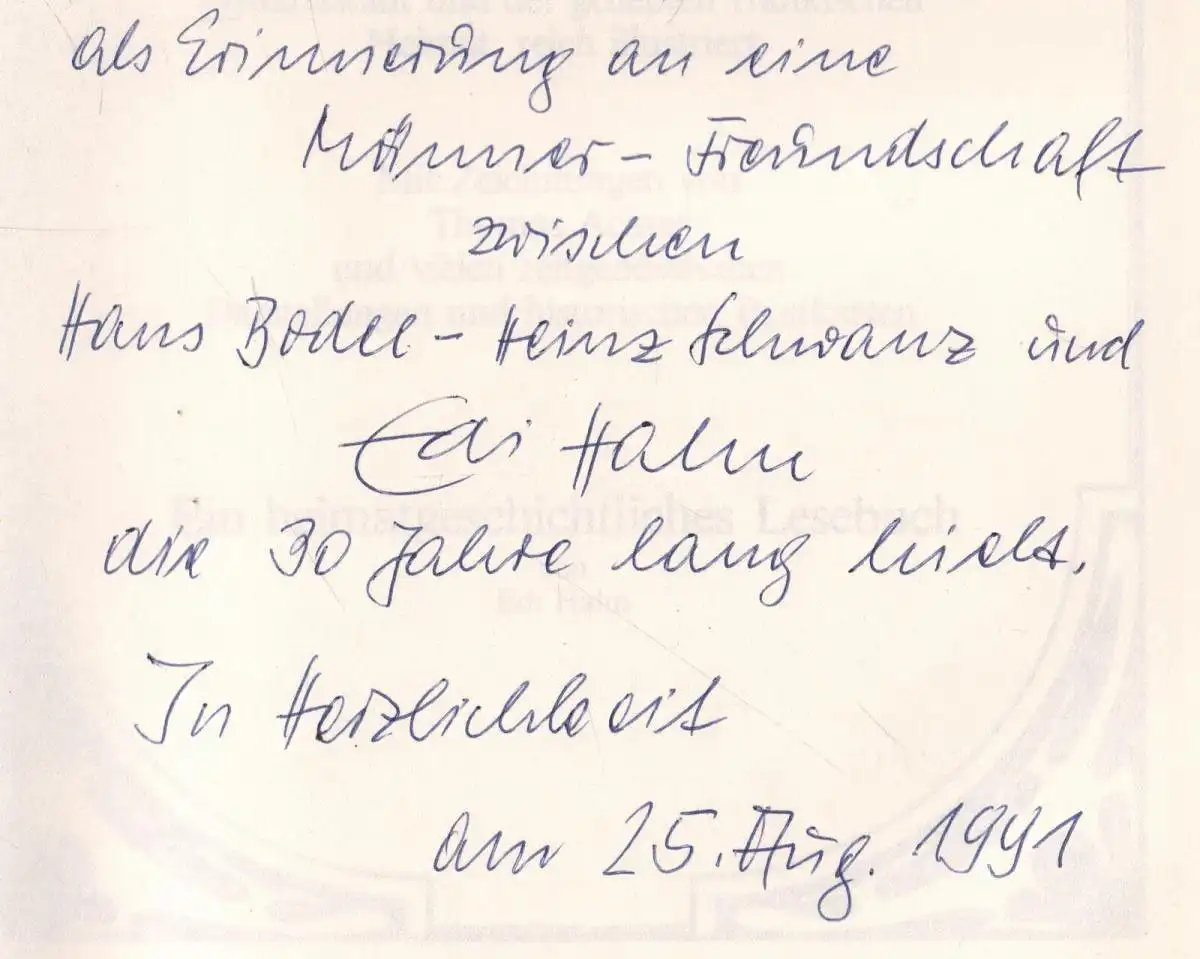 als Erinnerung an eine
Männer - Freundschaft
zwischen
Hans - Heinz Schwanz und
Edi Hahn
die 30 Jahre lang hielt.
In Herzlichkeit
am 25. Aug. 1991
Ein heimatgeschichtliches Lesebuch
von
Edi Hahn